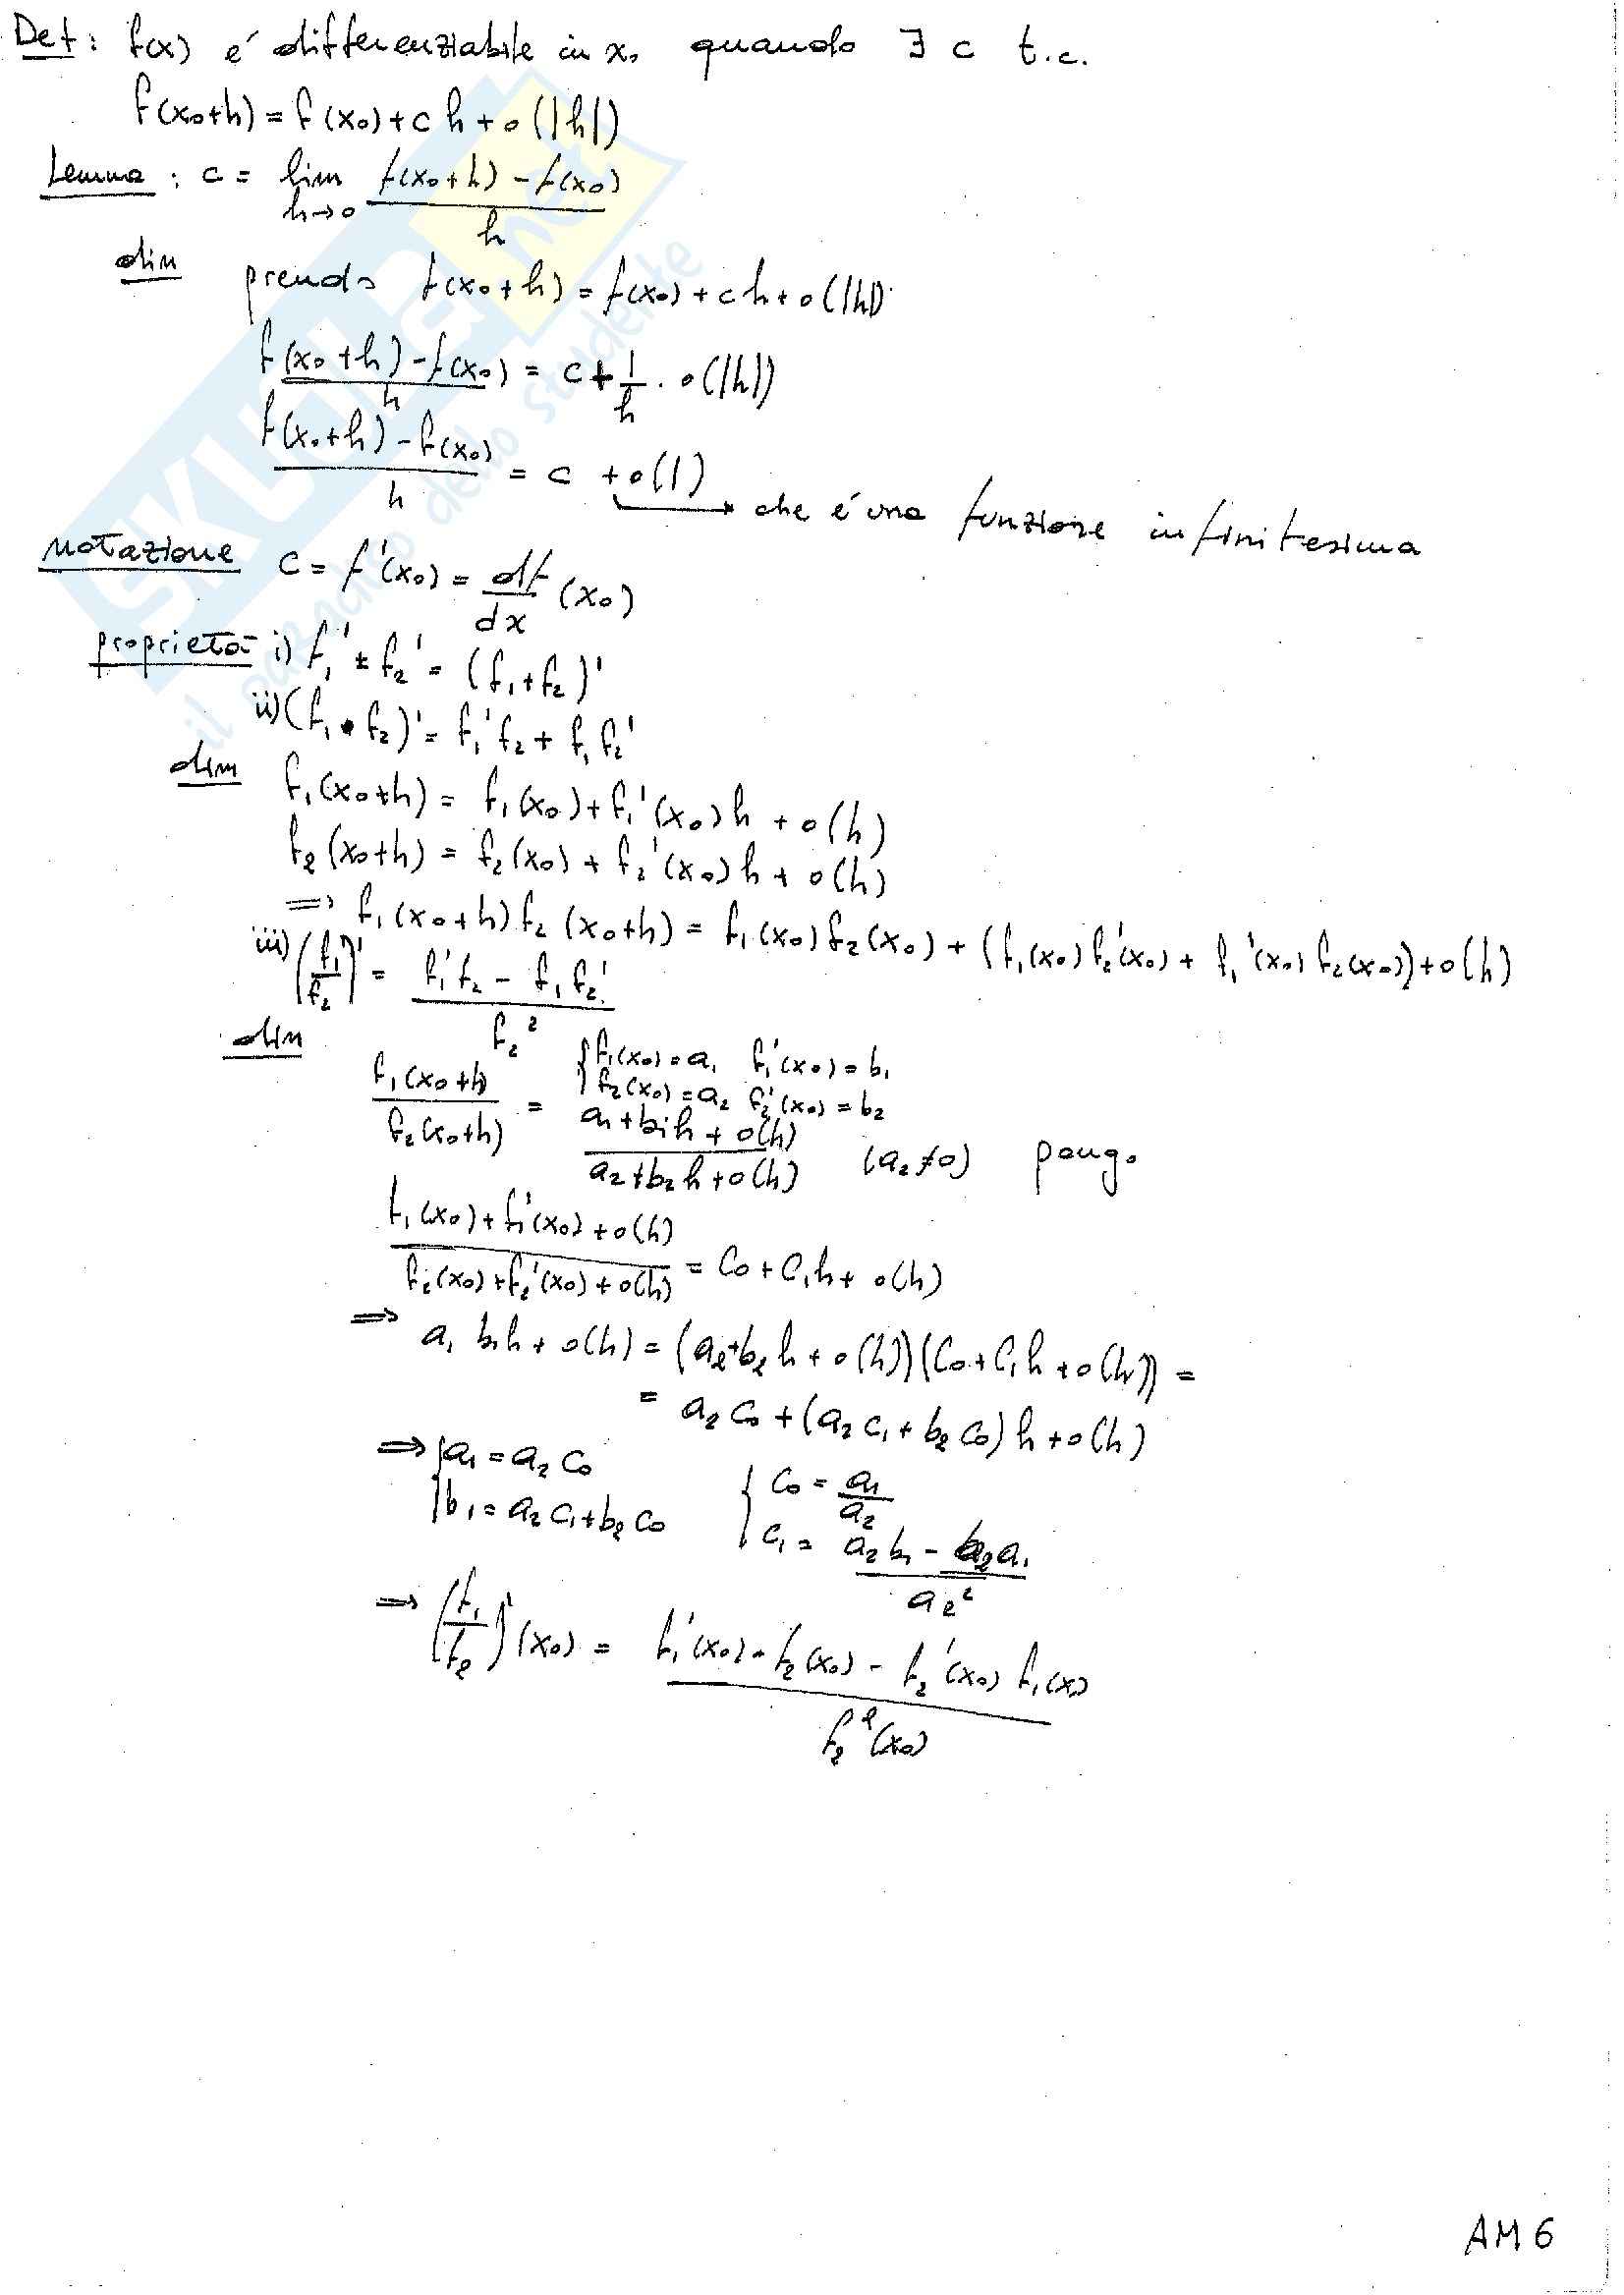 Def: f(x) é differenziabile in x₀ quando ∃ c t.c.
f(x₀+h) = f(x₀) + c h + o(|h|)
Lemma: c = lim h→0 (f(x₀+h) - f(x₀))/h
dim prendo f(x₀+h) = f(x₀) + ch + o(|h|)
(f(x₀+h) - f(x₀))/h = c + 1/h · o(|h|)
(f(x₀+h) - f(x₀))/h = c + o(1) → che é una funzione infinitesima
Notazione c = f'(x₀) = df/dx (x₀)
proprietà i) f₁' + f₂' = (f₁+f₂)'
ii) (f₁ • f₂)' = f₁' f₂ + f₁ f₂'
dim f₁(x₀+h) = f₁(x₀) + f₁'(x₀)h + o(h)
f₂(x₀+h) = f₂(x₀) + f₂'(x₀)h + o(h)
⇒ f₁(x₀+h) f₂(x₀+h) = f₁(x₀) f₂(x₀) + (f₁(x₀) f₂'(x₀) + f₁'(x₀) f₂(x₀)) + o(h)
iii) (f₁/f₂)' = (f₁' f₂ - f₁ f₂')/f₂²
dim
{ f₁(x₀) = a₁ f₁'(x₀) = b₁
{ f₂(x₀) = a₂ f₂'(x₀) = b₂
f₁(x₀+h)/f₂(x₀+h) = (a₁+b₁h+o(h))/(a₂+b₂h+o(h)) (a₂≠0) pongo
(f₁(x₀) + f₁'(x₀) + o(h))/(f₂(x₀) + f₂'(x₀) + o(h)) = c₀ + c₁h + o(h)
⇒ a₁ b₁h + o(h) = (a₂+b₂h + o(h))(c₀ + c₁h + o(h)) =
= a₂c₀ + (a₂c₁ + b₂c₀)h + o(h)
⇒ { a₁ = a₂c₀ { c₀ = a₁/a₂
{ b₁ = a₂c₁ + b₂c₀ { c₁ = (a₂b₁ - b₂a₁)/a₂²
⇒ (f₁/f₂)'(x₀) = (f₁'(x₀) · f₂(x₀) - f₂'(x₀) f₁(x₀))/f₂²(x₀)
AM6
SKUOLA.net
il paradiso dello studente